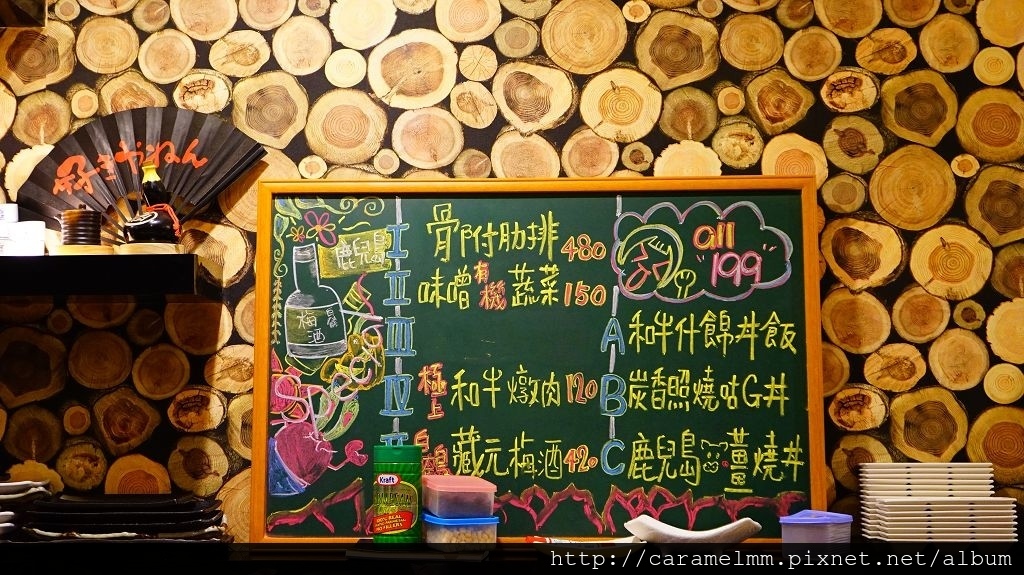 好きやねん
鹿兒島
梅酒
I 骨附肋排 480
II 味噌有機蔬菜 150
III
IV 極上和牛燉肉 120
藏元梅酒 420
all 199
A 和牛什錦丼飯
B 炭香照燒咕G丼
C 鹿兒島薑燒丼
Kraft
http://caramelmm.pixnet.net/album